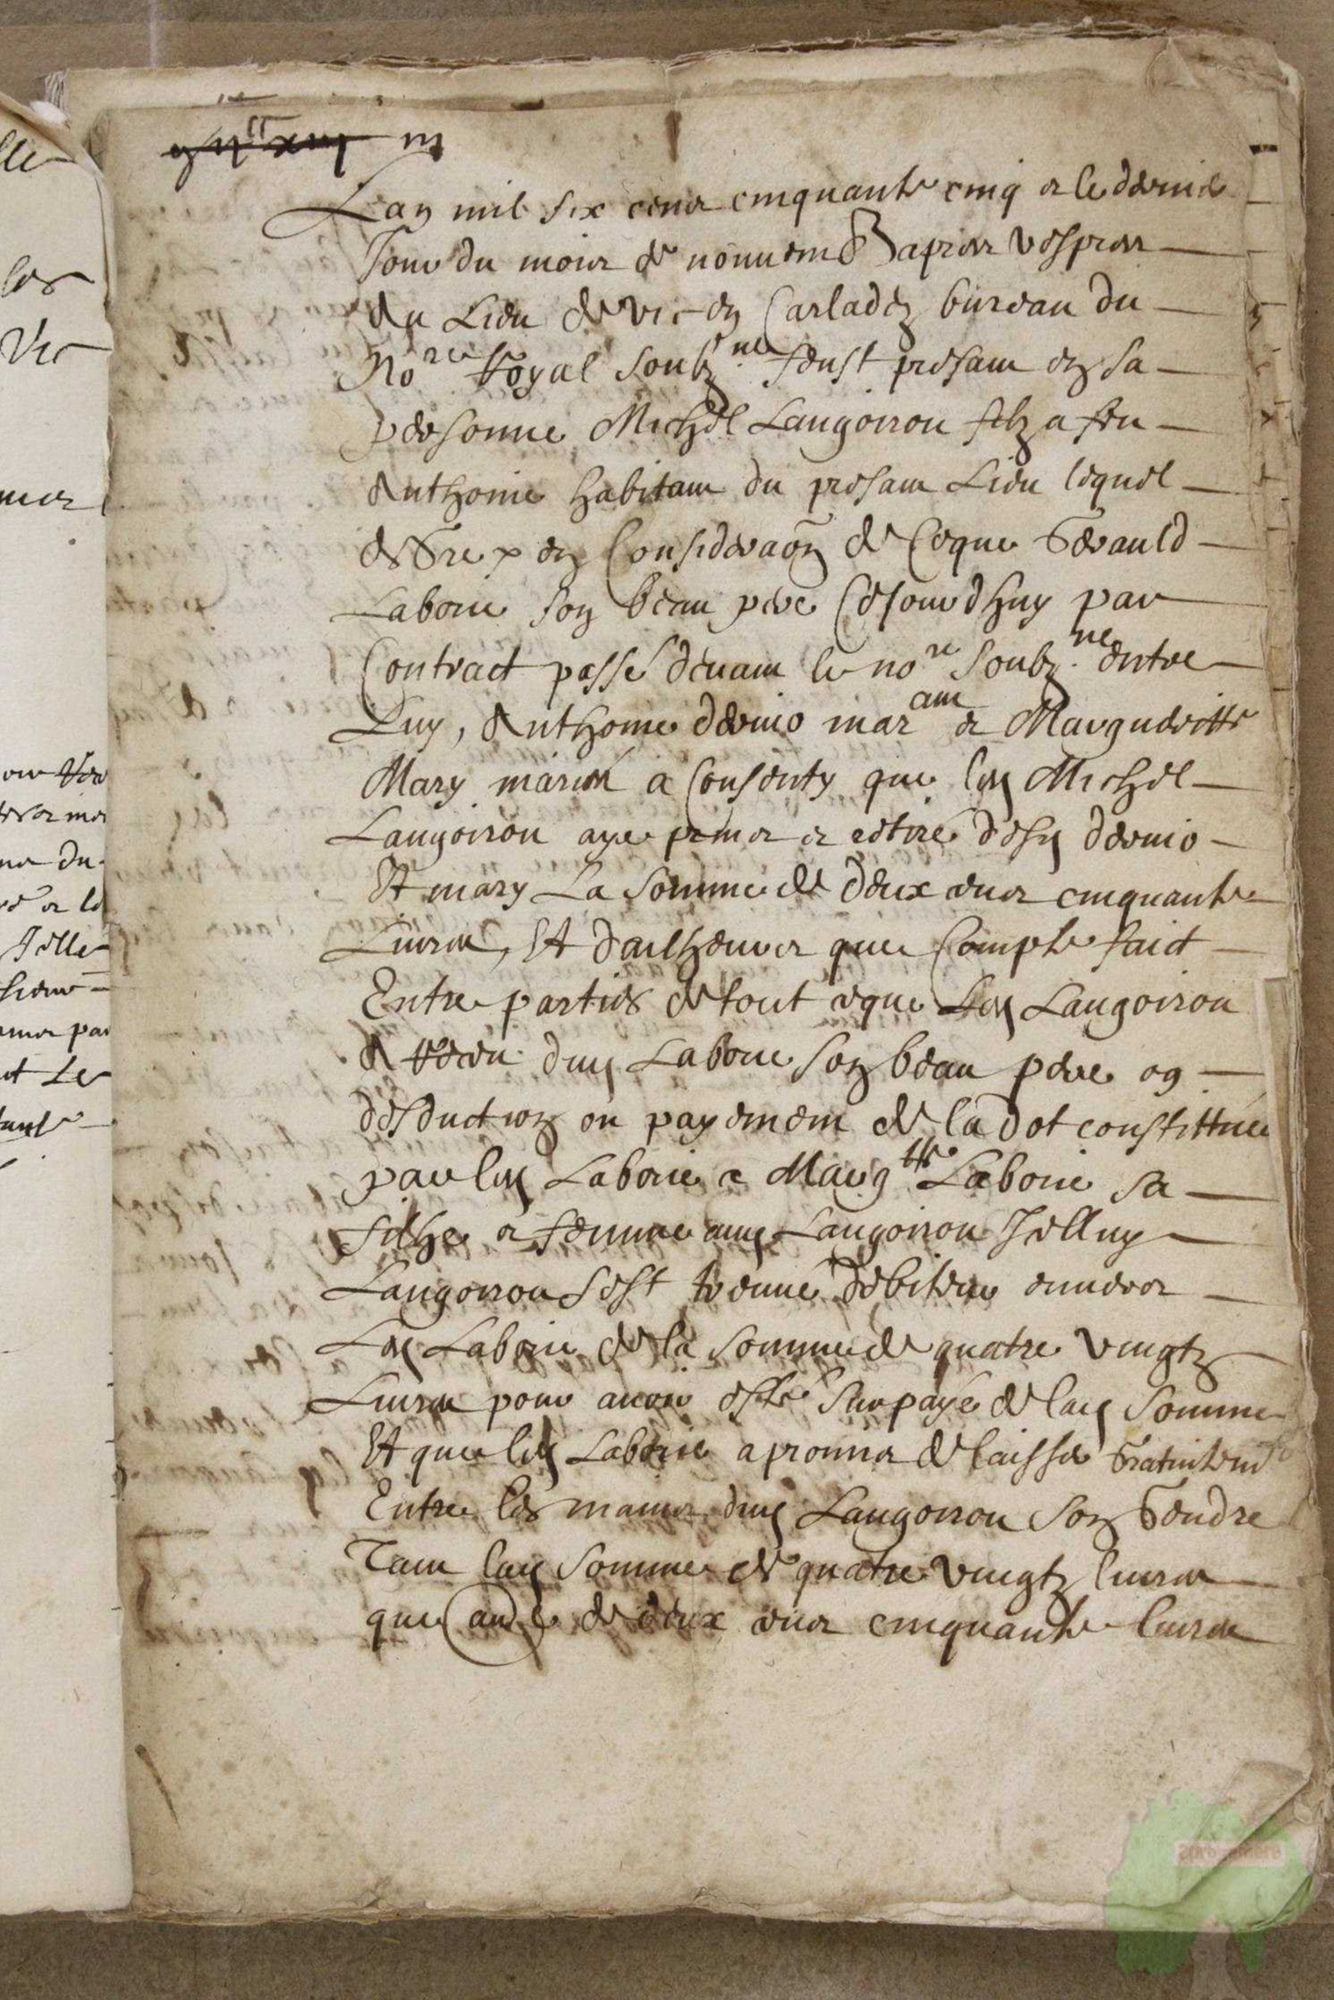 Lan mil six cens cinquante cinq et le dernier
Jour du mois de novembre apres vespres
au Lieu de vic en Carladez bureau du
No.re Royal soubz.ne feust presant en sa
personne Michel Laugoirou filz a feu
Anthoine habitant du presant Lieu lequel
de gre en Consideraon de Ceque Gerauld
Laborie son beau pere Cejourdhuy par
Contract passé devant le no.re soubz.ne entre
Luy, Anthoine dernio mar.ant et Margueritte
Mary mariés a Consenty que led Michel
Laugoirou aye prins et retiré desd dernio
Et mary La somme de deux cens cinquante
Livres, Et dailheurs que Compte faict
Entre parties de tout ceque led Laugoirou
A Receu dud Laborie son beau pere en
desduction ou payement de la dot constittuee
par led Laborie a Marg.tte Laborie sa
filhe et femme aud Laugoirou Jelluy
Laugoirou sest treuvé debiteur envers
Led Laborie de la somme de quatre vingtz
Livres pour avoir esté surpayé de lad somme
Et que led Laborie a promis de laisser Gratuitemt
Entre les mains dud Laugoirou son Gendre
Tant lad somme de quatre vingtz livres
que Celle de deux cens cinquante livres